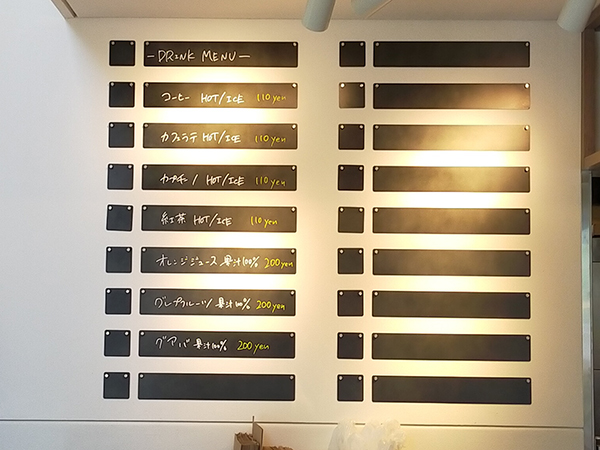 -DRINK MENU-
コーヒー HOT/ICE 110 yen
カフェラテ HOT/ICE 110 yen
カプチーノ HOT/ICE 110 yen
紅茶 HOT/ICE 110 yen
オレンジジュース 果汁100% 200 yen
グレープフルーツ 果汁100% 200 yen
グアバ 果汁100% 200 yen